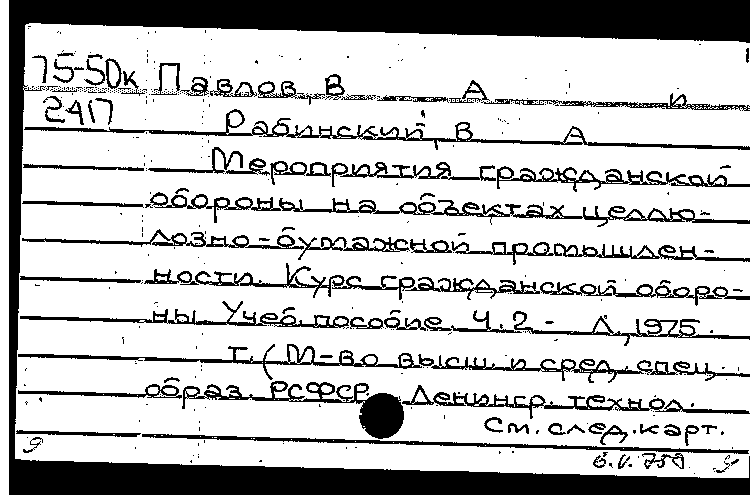 75-50к Павлов, В А и
24П Рабинский, В А
Мероприятия гражданской
обороны на объектах целлю-
лозно-бумажной промышлен-
ности. Курс гражданской оборо-
ны. Учеб. пособие. Ч.2 - Л., 1975.
т. (М-во высш. и сред. спец.
образ. РСФСР. Ленингр. технол.
См. след. карт.